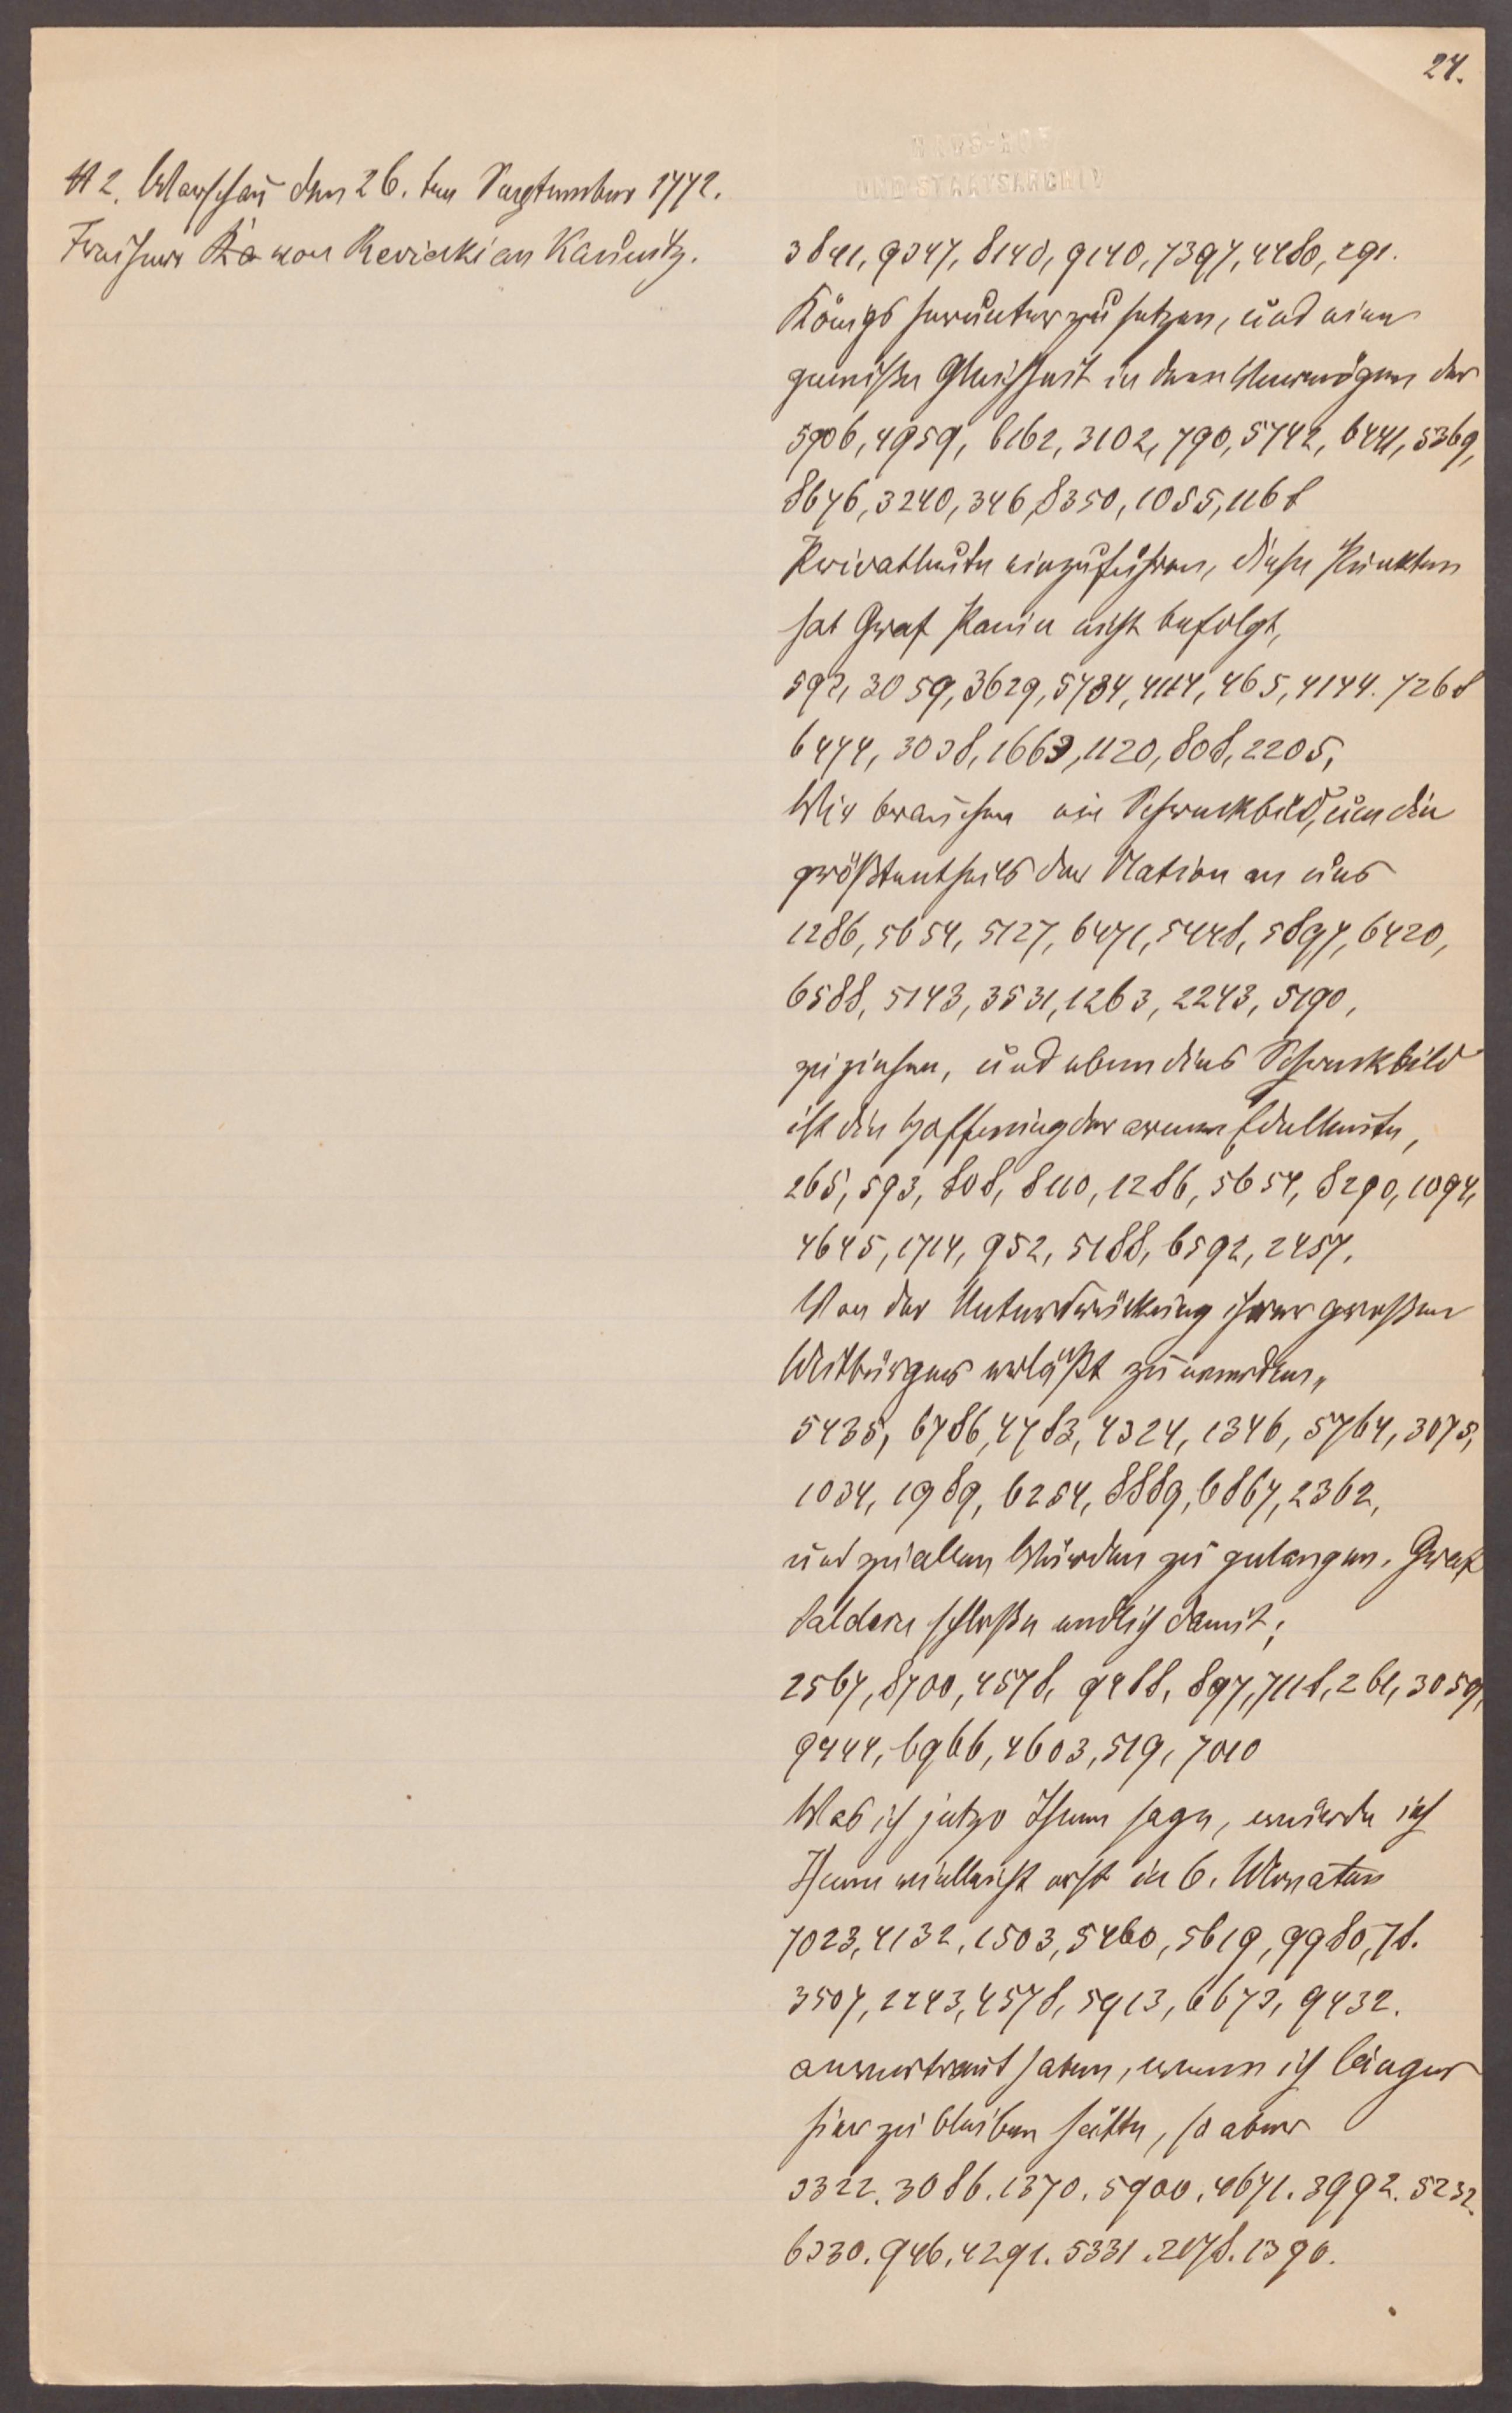 24.
HAUS-HOF
UND STAATSARCHIV
A 2. Warschau den 26. ten September 1772.
Freiherr Ra von Reviczki an Kaunitz.
3841, 9347, 8140, 9140, 7397, 4480, 291.
Königs herunter zu setzen, und eine
gewiße Gleichheit in dem Vermögen der
5906, 4959, 6162, 3102, 790, 5742, 6441, 5369,
8676, 3240, 346, 8350, 1055, 1168
Privatleute einzuführen, diese Punkten
hat Graf Panin nicht befolgt,
592, 3059, 3629, 5734, 4114, 465, 4144. 7268
6474, 3038, 1663, 1120, 808, 2205,
Wir brauchen ein Schreckbild, um die
größtentheils der Nation an uns
1286, 5654, 5127, 6471, 5448, 5897, 6420,
6588, 5143, 3531, 1263, 2243, 5190,
zu ziehen, und eben dies Schreckbild
ist die Hoffnung der armen Edelleute,
265, 593, 808, 8110, 1286, 5654, 8290, 1094,
4645, 1714, 952, 5188, 6592, 2457,
Von der Unterdrückung ihrer großen
Mitbürger erlößt zu werden,
5435, 6786, 4783, 4324, 1346, 5764, 3075,
1034, 1989, 6254, 8889, 6867, 2362,
und zu allen Würden zu gelangen. Graf
Saldern schloße endlich damit;
2567, 8700, 4578, 9488, 897, 7118, 261, 3059,
9444, 6966, 4603, 519, 7010
Was ich jetzo Ihnen sage, würde ich
Ihnen vielleicht erst in 6. Monaten
7023, 4132, 1503, 5460, 5619, 9980, 78.
3507, 2243, 4578, 5913, 6673, 9432.
anvertraut haben, wenn ich länger
hier zu bleiben hätte, so aber
3322. 3086. 1370. 5900. 4671. 3992. 5232.
6330. 946. 4291. 5331. 2178. 1390.